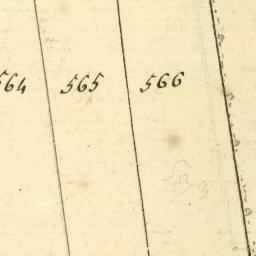 564 565 566